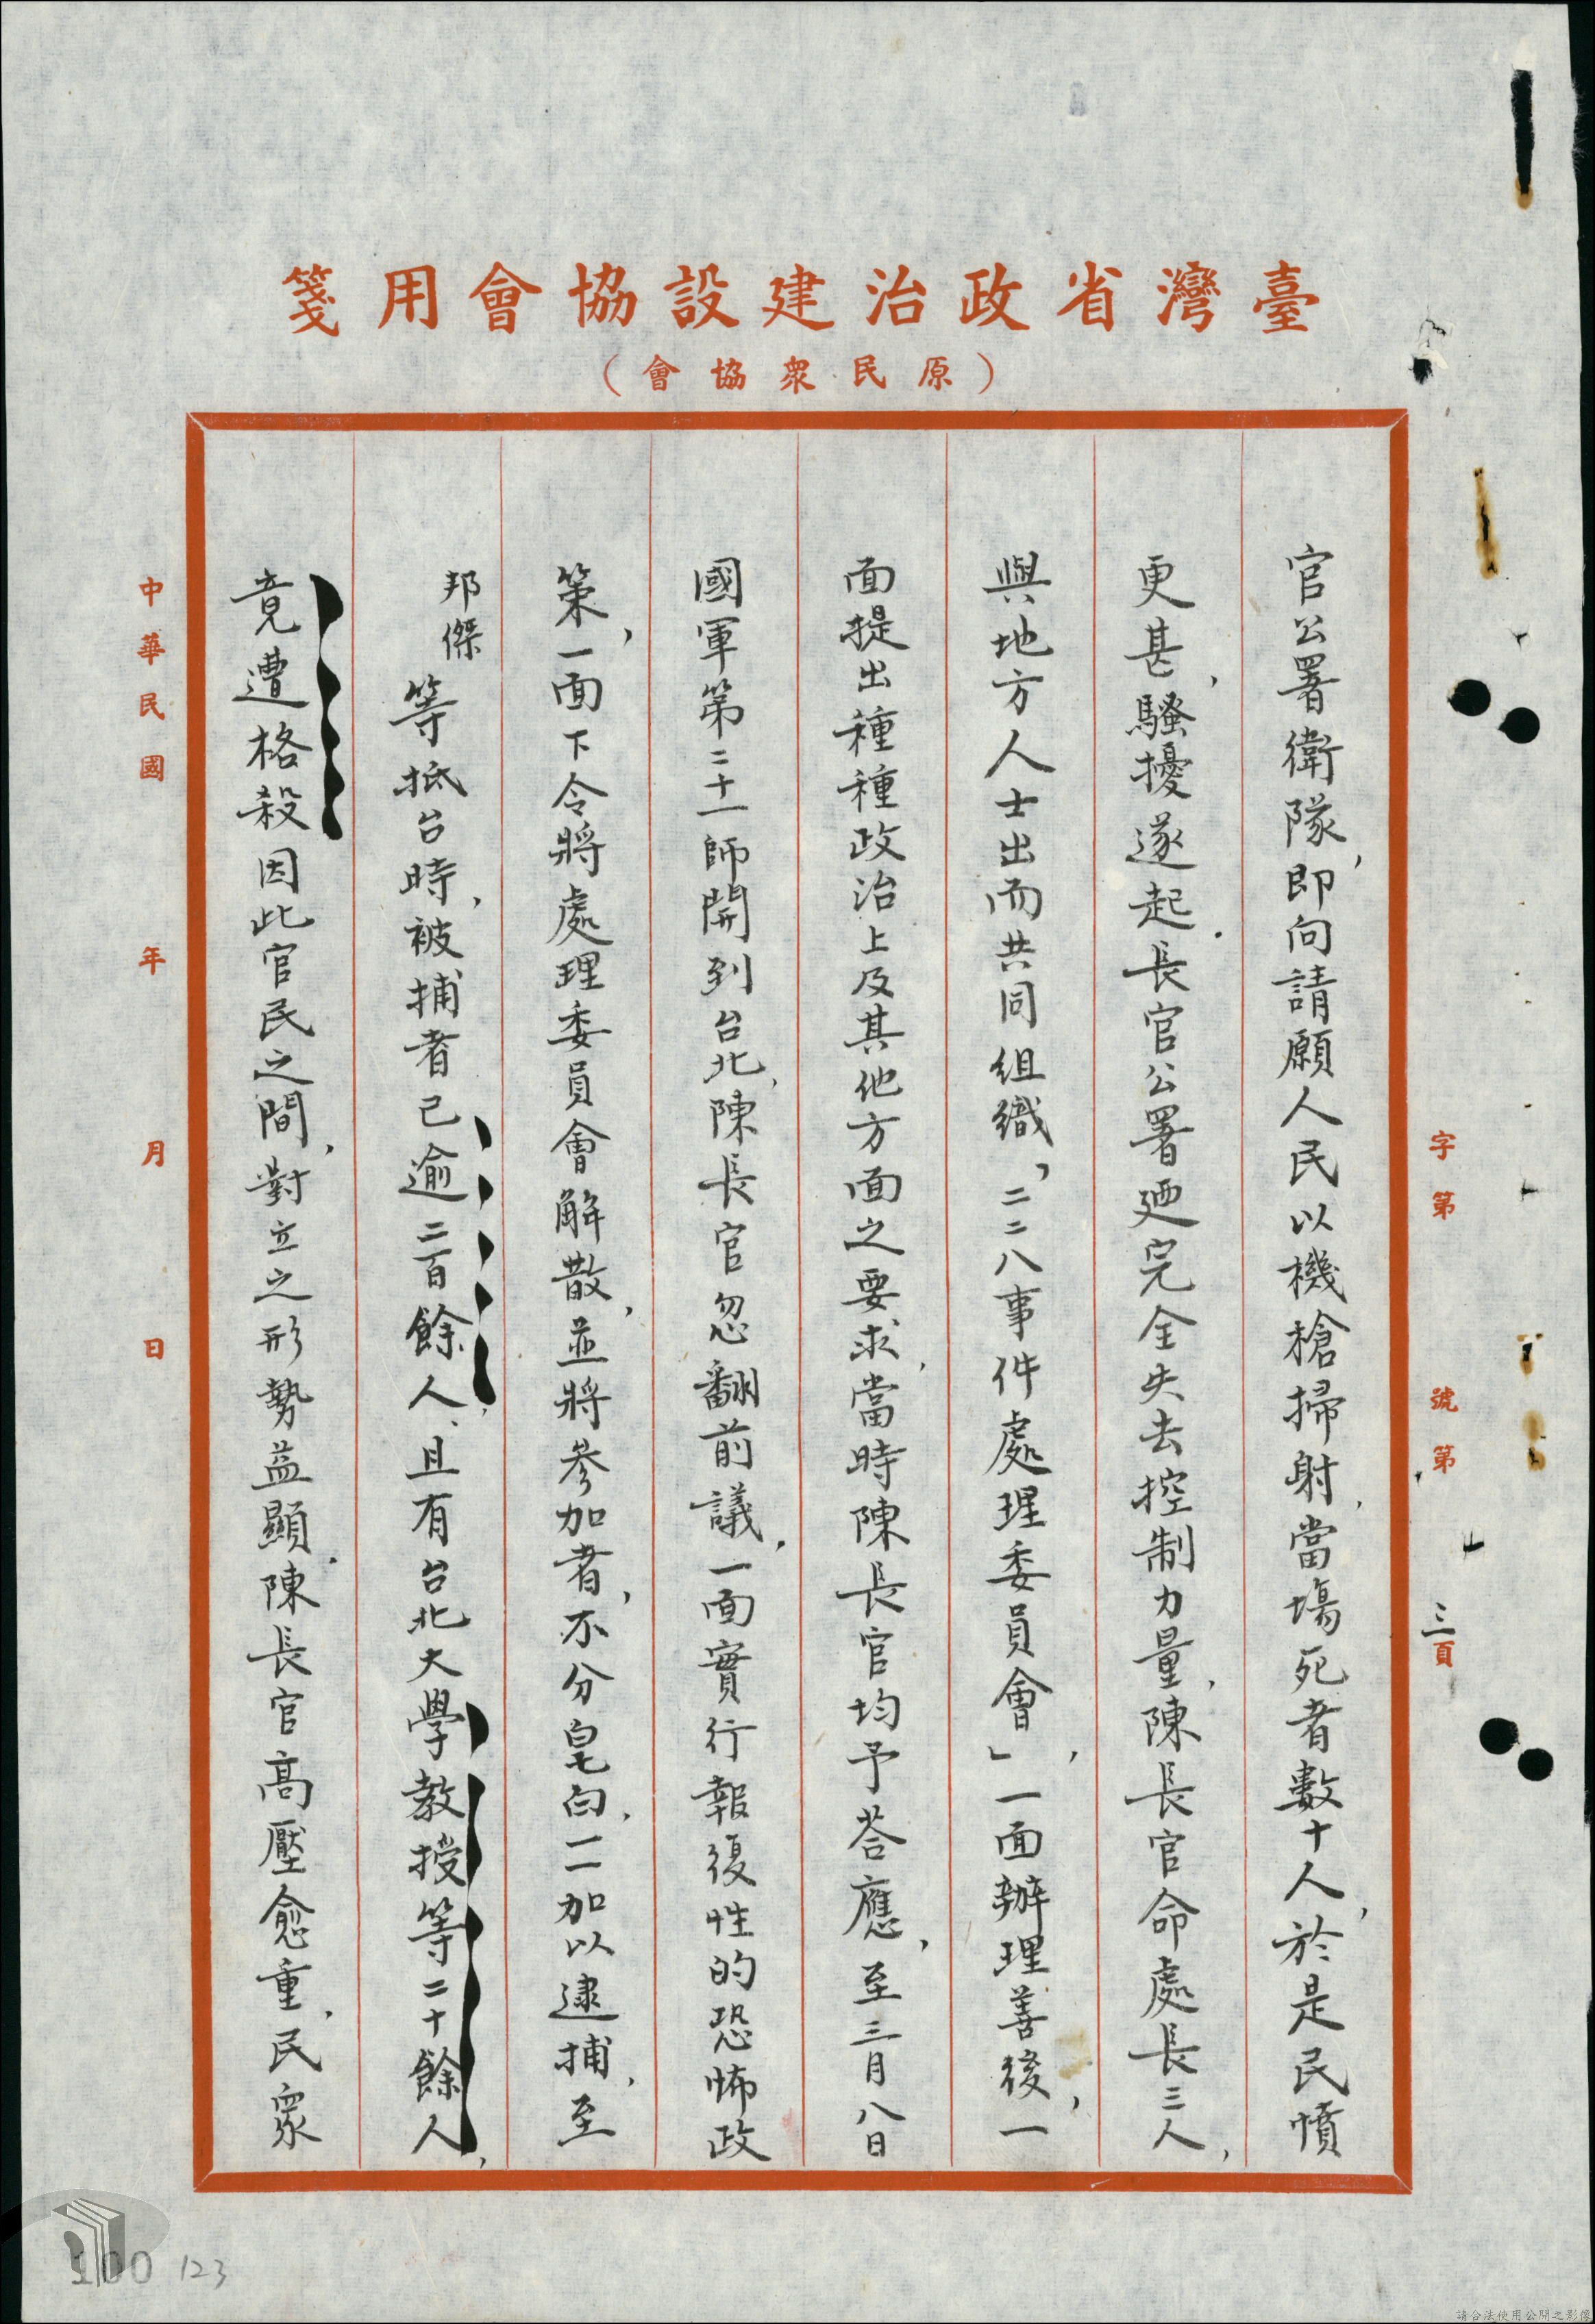 臺灣省政治建設協會用箋
（原民眾協會）
字第　號第三頁
官公署衛隊，即向請願人民以機槍掃射，當場死者數十人，於是民憤
更甚，騷擾遂起．長官公署廼完全失去控制力量，陳長官命處長三人，
與地方人士出而共同組織「二二八事件處理委員會」，一面辦理善後，一
面提出種種政治上及其他方面之要求，當時陳長官均予荅應，至三月八日
國軍第二十一師開到台北，陳長官忽翻前議，一面實行報復性的恐怖政
策，一面下令將處理委員會解散，並將參加者，不分皂白，一一加以逮捕，至
邦傑等抵台時，被捕者已逾二百餘人，且有台北大學教授等二十餘人，
竟遭格殺因此官民之間，對立之形勢益顯．陳長官高壓愈重，民眾
中華民國　年　月　日
100 123
請合法使用公開之影像